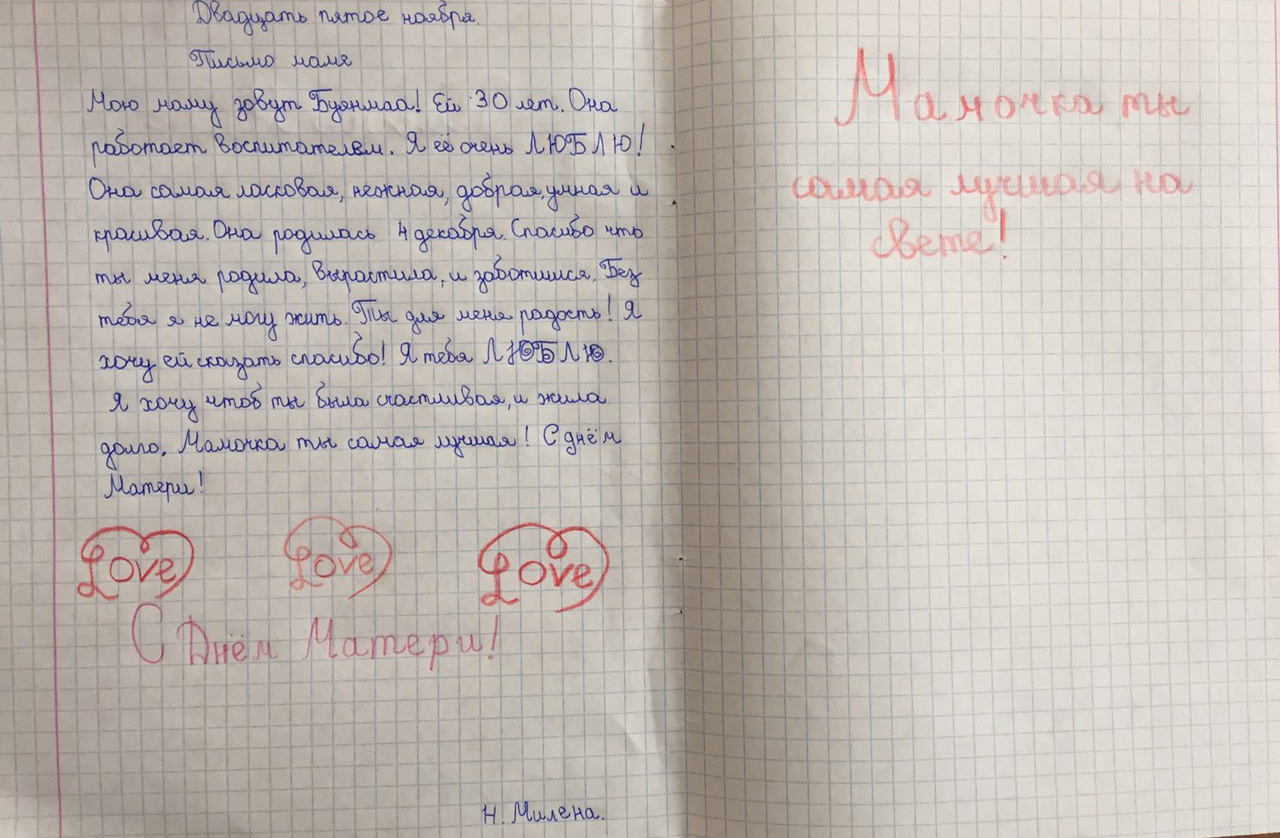 Двадцать пятое ноября.
Письмо маме
Мою маму зовут Буянмаа! Ей 30 лет. Она
работает воспитателем. Я её очень ЛЮБЛЮ!
Она самая ласковая, нежная, добрая, умная и
красивая. Она родилась 4 декабря. Спасибо что
ты меня родила, вырастила, и заботишися. Без
тебя я не могу жить. Ты для меня радость! Я
хочу ей сказать спасибо! Я тебя ЛЮБЛЮ.
Я хочу чтоб ты была счастливая, и жила
долго. Мамочка ты самая лучшая! С днём
Матери!
Love Love Love
С Днём Матери!
Н. Милена.
Мамочка ты
самая лучшая на
свете!